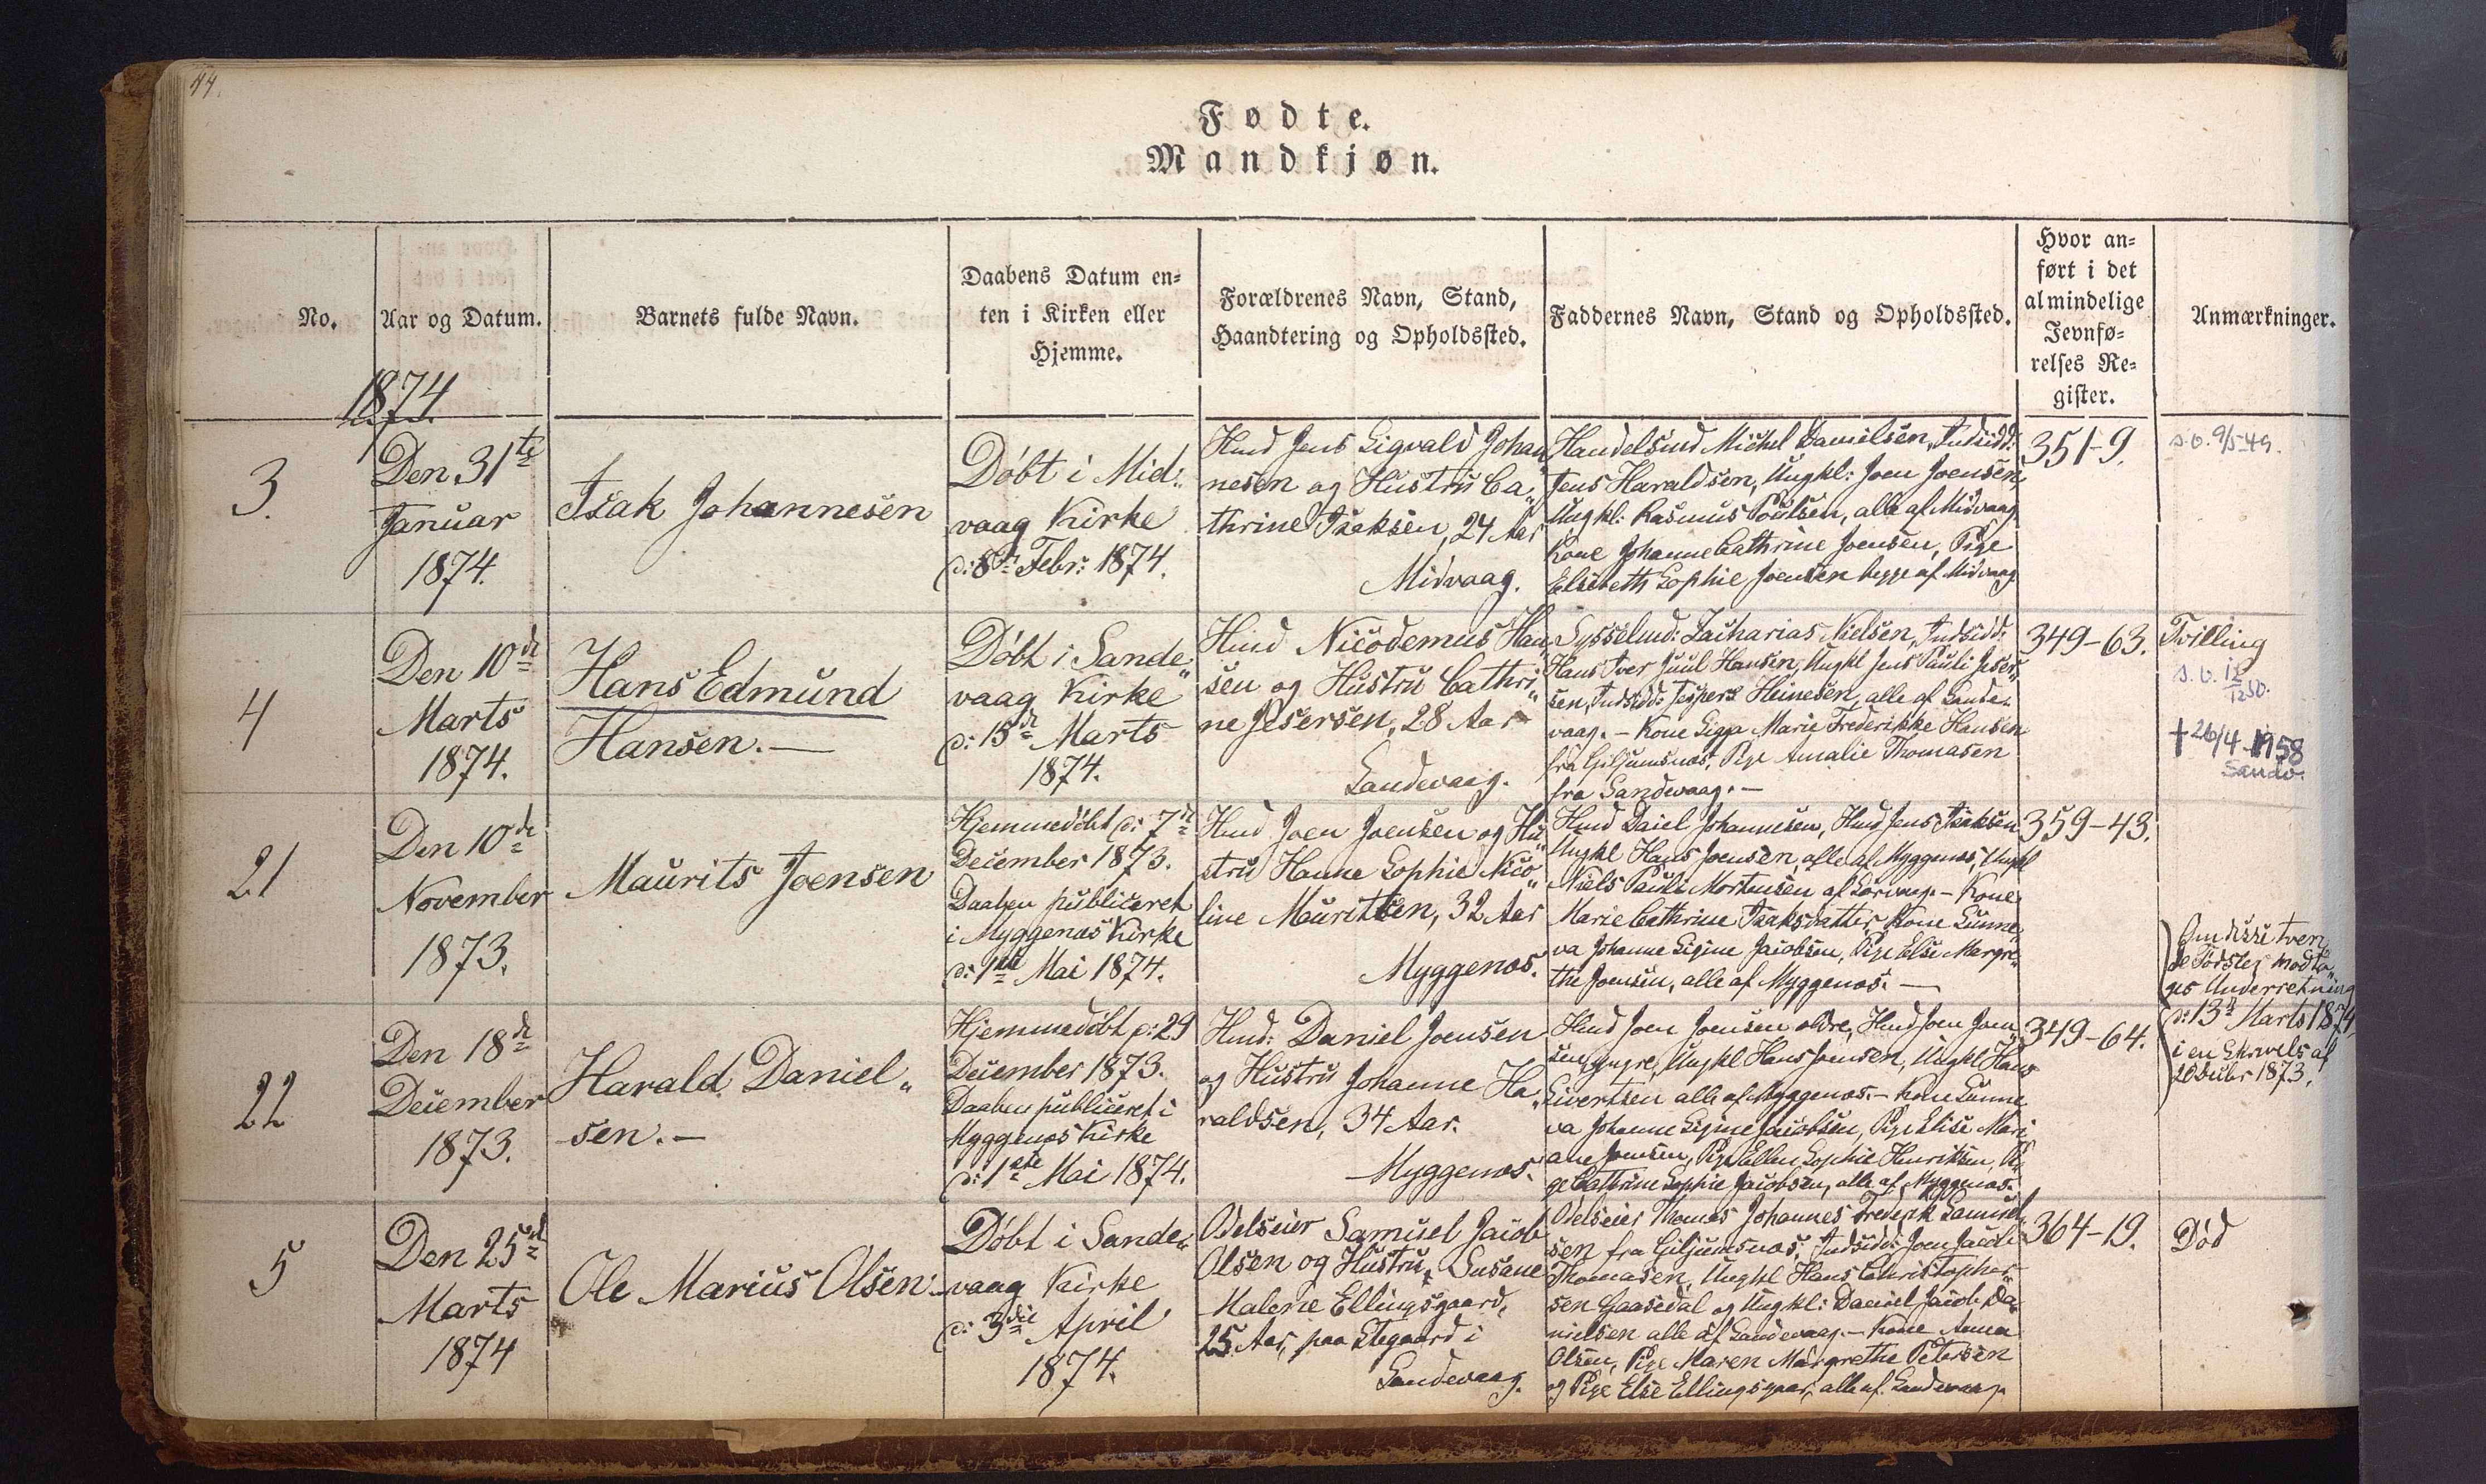 44.
Fødte.
Mandkjøn.
No.
Aar og Datum.
Barnets fulde Navn.
Daabens Datum en-
ten i Kirken eller
Hjemme.
Forældrenes Navn, Stand,
Haandtering og Opholdssted.
Faddernes Navn, Stand og Opholdssted.
Hvor an-
ført i det
almindelige
Jevnfø-
relses Re-
gister.
Anmærkninger.
1874.
3.
Den 31te
Januar
1874.
Isak Johannesen
Døbt i Mid-
vaag Kirke
d: 8de Febr: 1874.
Hmd Jens Sigvald Johan
nesen og Hustru Ca
thrine Isaksen, 24 Aar
Midvaag.
Handelsmd Michel Danielsen, Indsidd:
Jens Haraldsen, Ungkl: Joen Joensen,
Ungkl: Rasmus Poulsen, alle af Midvaag
Kone Johanne Cathrine Joensen, Pige
Elsebeth Sophie Joensen begge af Midvaag
351-9.
s.v. 9/5-49.
4
Den 10de
Marts
1874.
Hans Edmund
Hansen.—
Døbt i Sande
vaag Kirke
d: 15de Marts
1874.
Hmd Nicodemus Han
sen og Hustru Cathri
ne Jesersen, 28 Aar
Sandevaag.
Sysselmd: Zacharias Nielsen, Indsidd:
Hans Iver Juul Hansen, Ungkl Jens Pauli Jeser
sen, Indsidd: Jespers Heinesen, alle af Sande-
vaag. — Kone Sigga Marie Frederikke Hansen
fra Giljumsnæs, Pige Amalie Thomasen
fra Sandevaag.—
349-63.
Tvilling
s.v. 12/12 50.
†26/4-1958
Sandv.
21
Den 10de
November
1873.
Maurits Joensen
Hjemmedøbt d: 7de
December 1873.
Daaben publiceret
i Myggenæs Kirke
d: 1ste Mai 1874.
Hmd Joen Joensen og Hu
stru Hanne Sophie Nico
line Mauritsen, 32 Aar
Myggenæs.
Hmd Daiel Johannesen, Hmd Jens Isaksen
Ungkl Hans Joensen, alle af Myggenæs, Ungkl
Niels Pauli Mortensen af Sørvaag. — Kone
Marie Cathrine Isaksdatter, Kone Sunne
va Johanne Sigine Jacobsen, Pige Else Margre
the Joensen, alle af Myggenæs. —
359-43.
Om disse tven
de Fødsler modto
ges Underretning
d: 13de Marts 1874,
i en Skrivels af
20 Decbr 1873.
22
Den 18de
December
1873.
Harald Daniel
sen.—
Hjemmedøbt d: 29
December 1873.
Daaben publiceret i
Myggenæs Kirke
d: 1ste Mai 1874.
Hmd: Daniel Joensen
og Hustru Johanne Ha
raldsen, 34 Aar.
Myggenæs.
Hmd Joen Joensen ældre, Hmd Joen Joen
sen yngre, Ungkl Hans Joensen, Ungkl Hans
Sivertsen alle af Myggenæs. — Kone Sunne
va Johanne Sigine Jacobsen, Pige Elise Mari
ane Joensen, Pige Ellen Sophie Henriksen, Pi
ge Cathrine Sophie Jacobsen, alle af Myggenæs.
349-64.
5
Den 25de
Marts
1874
Ole Marius Olsen
Døbt i Sande
vaag Kirke
d: 3die April
1874.
Odelseier Samuel Jacob
Olsen og Hustru, Susane
Malene Ellingsgaard,
25 Aar, paa Stegaard i
Sandevaag.
Odelseier Thomas Johannes Frederik Samuel
sen fra Giljumsnæs, Indsidd: Joen Jacob
Thomasen, Ungkl Hans Christopher
sen Gaasedal og Ungkl: Daniel Jacob Da
nielsen alle af Sandevaag. — Kone Anna
Olsen, Pige Maren Margrethe Petersen
og Pige Else Ellingsgaar, alle af Sandevaag.
364-19.
Død